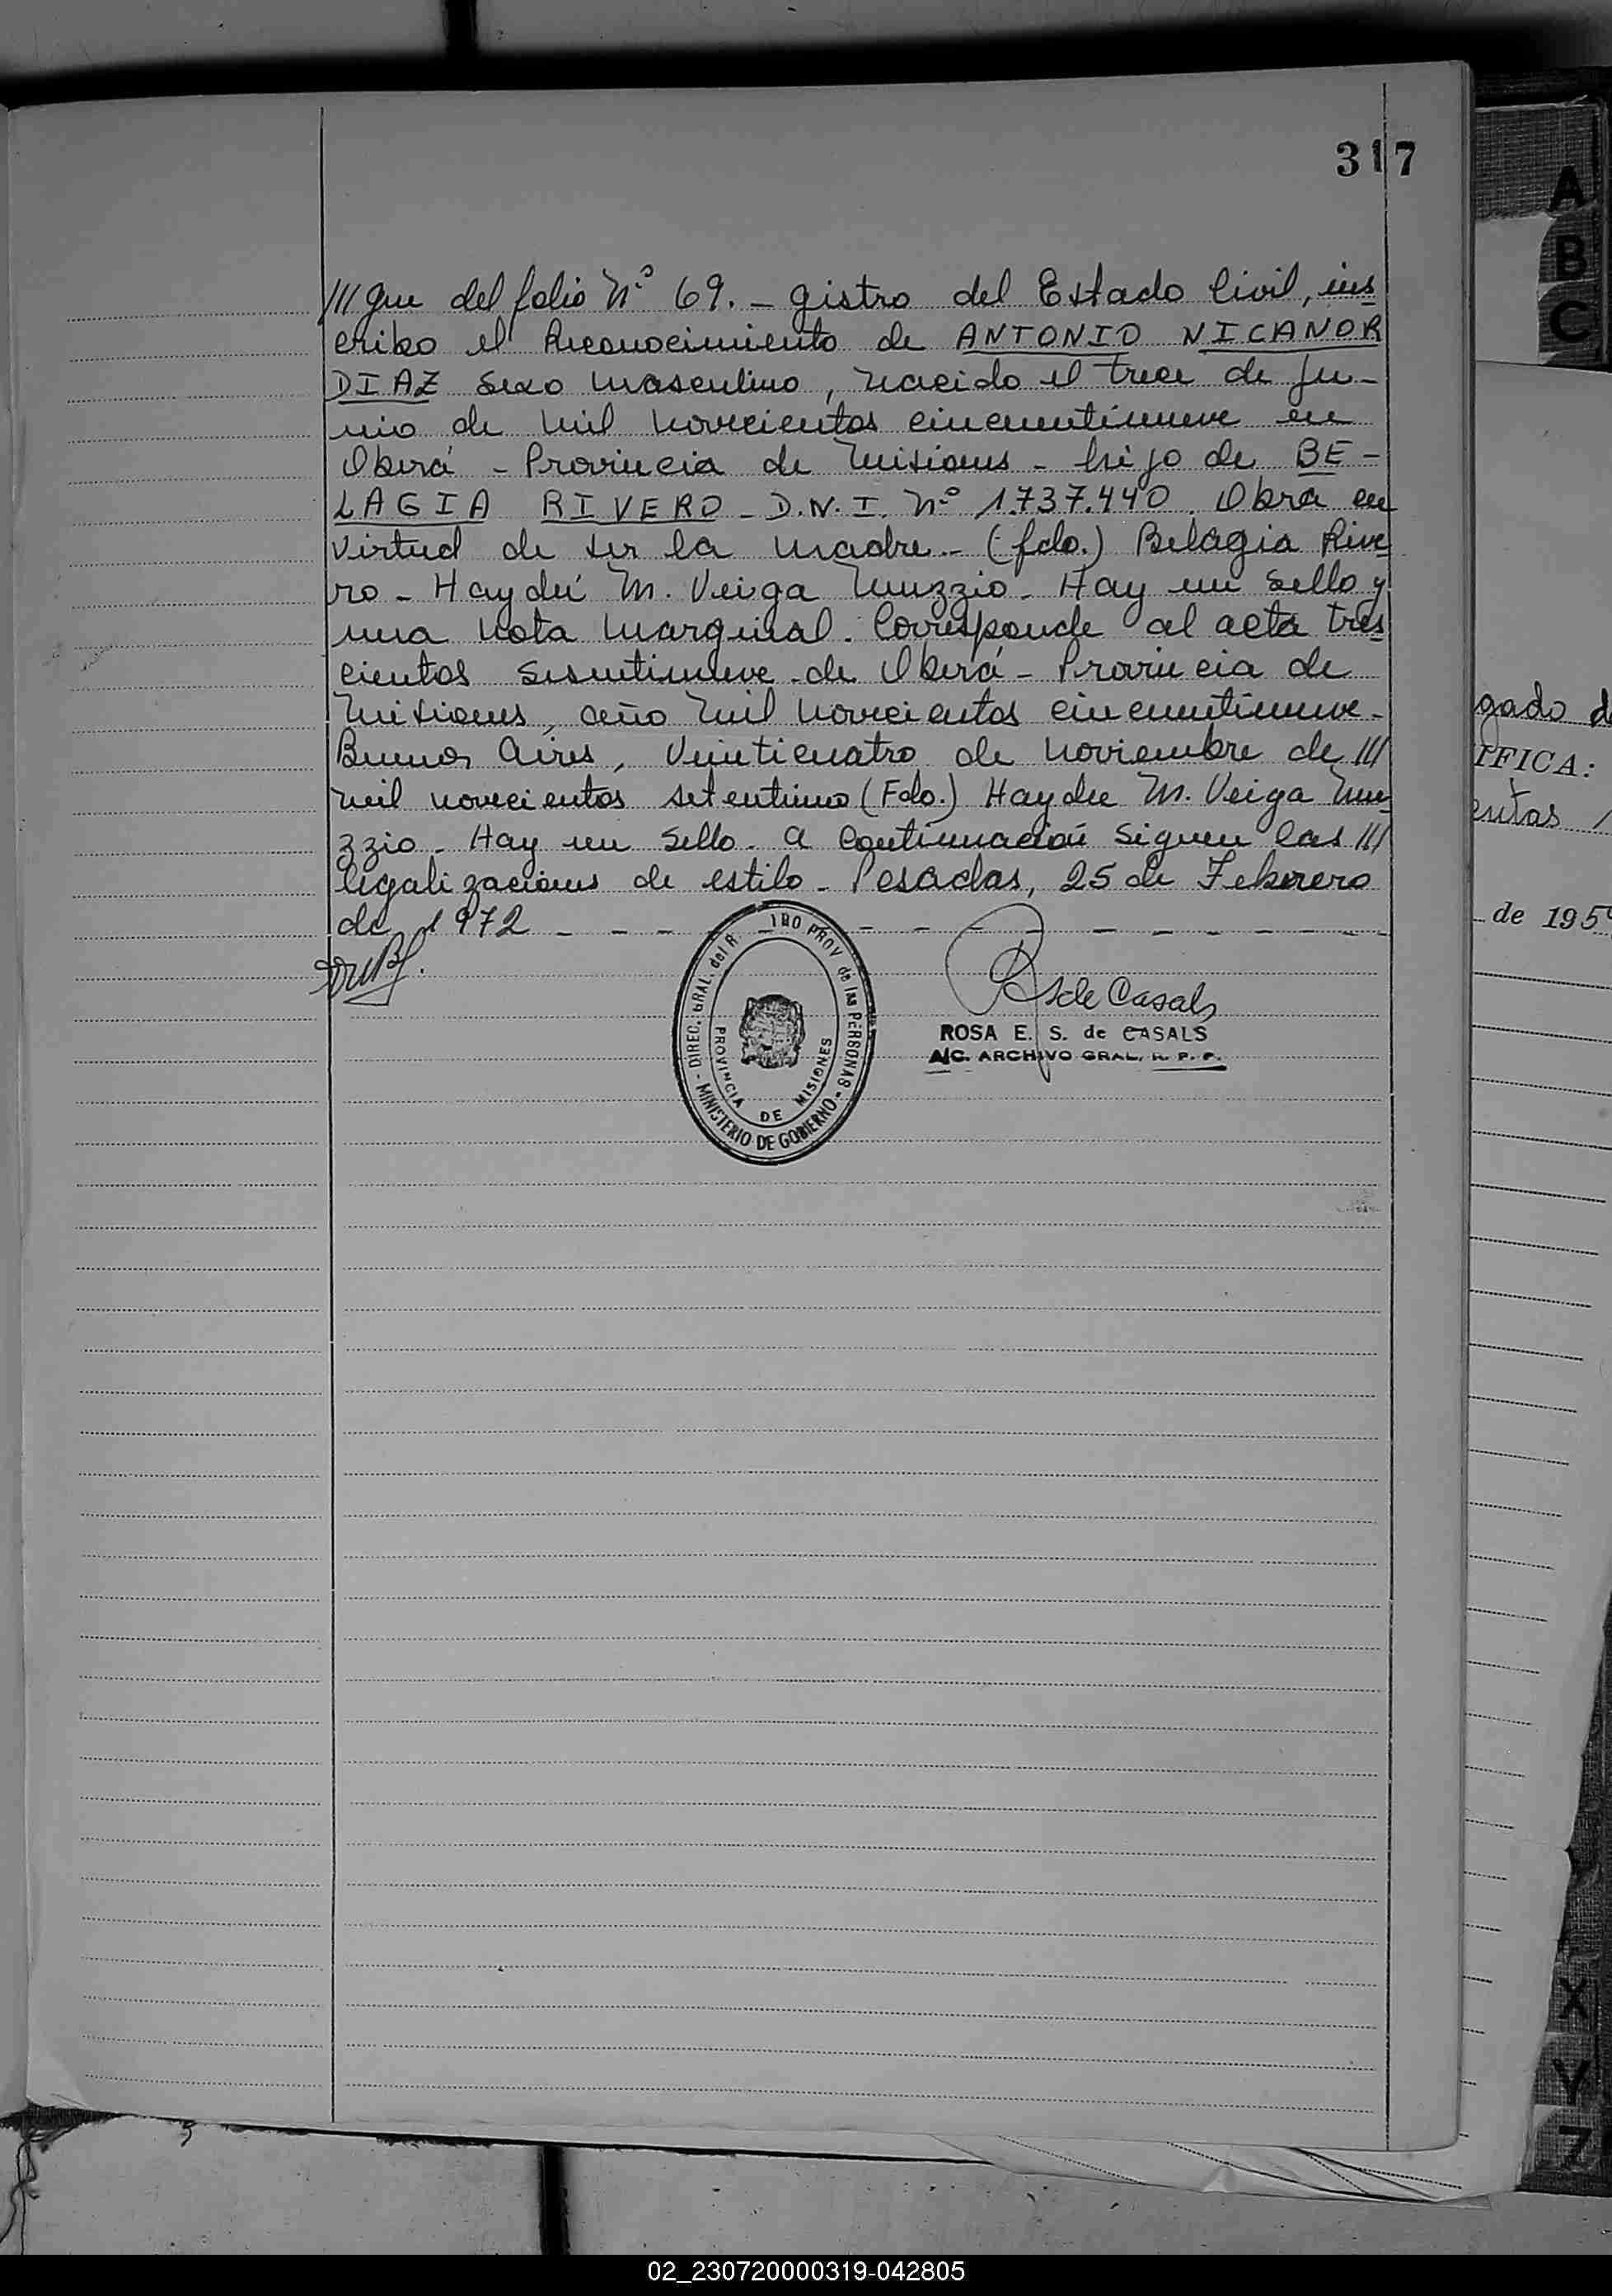 317
/// gue del folio Nº 69. - gistro del Estado Civil, ins
cribo el Reconocimiento de ANTONIO NICANOR
DIAZ Sexo masculino, nacido el trece de Ju-
nio de mil novecientos cincuentinueve en
Oberá - Provincia de Misiones - hijo de BE-
LAGIA RIVERO - D.N.I. Nº 1.737.440. Obra en
virtud de ser la madre.- (fdo.) Belagia Rive
ro - Haydeé M. Veiga Muzzio - Hay un Sello y
una nota marginal. Corresponde al acta tres
cientos sesentinueve de Oberá - Provincia de
Misiones, año mil novecientos cincuentinueve.
Buenos Aires, Veinticuatro de noviembre de ///
mil novecientos setentiuno (Fdo.) Haydee M. Veiga Mu
zzio - Hay un Sello. a continuación siguen las ///
legalizaciones de estilo - Posadas, 25 de Febrero
de 1972
DIREC. GRAL. del R PROV de las PERSONAS - MINISTERIO DE GOBIERNO -
PROVINCIA DE MISIONES
R S de Casals
ROSA E. S. de CASALS
A/C. ARCHIVO GRAL. R. P. P.
gado d
IFICA:
entas
de 195
A
B
C
X
Y
Z
02_230720000319-042805